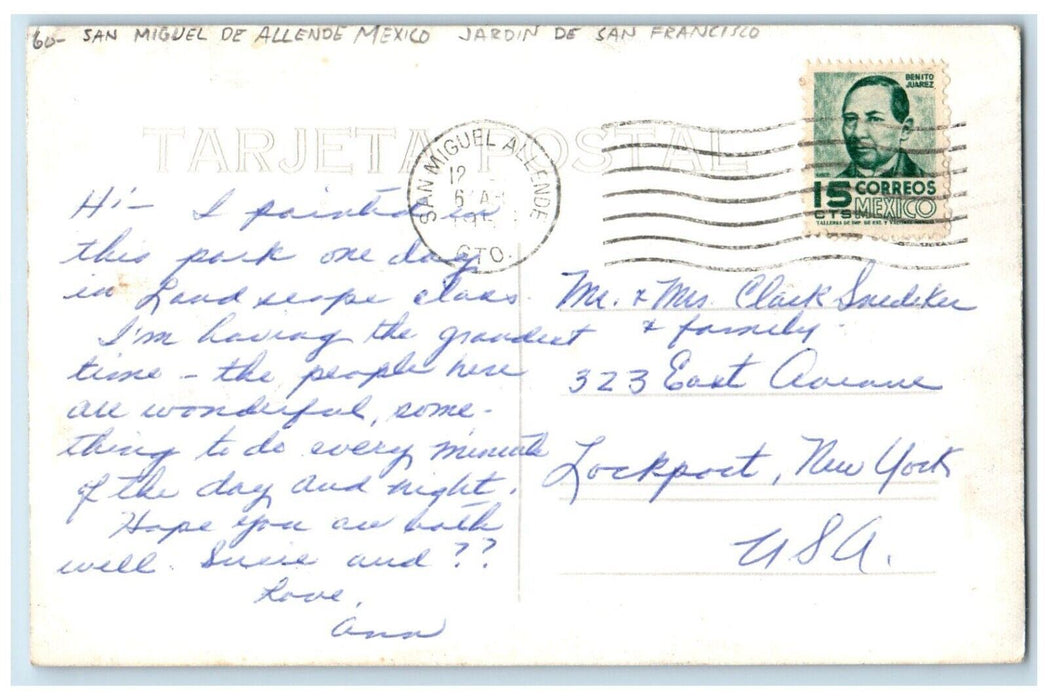 60- SAN MIGUEL DE ALLENDE MEXICO JARDIN DE SAN FRANCISCO
TARJETA POSTAL
BENITO
JUAREZ
15 CORREOS
CTS MEXICO
SAN MIGUEL ALLENDE
12
6
GTO.
Hi - I painted in
this park one day
in Landscape class.
I'm having the grandest
time - the people here
are wonderful, some-
thing to do every minute
of the day and night.
Hope you are both
well. Susie and ??
Love,
Ann
Mr. & Mrs. Clark Snediker
& family
323 East Avenue
Lockport, New York
USA.